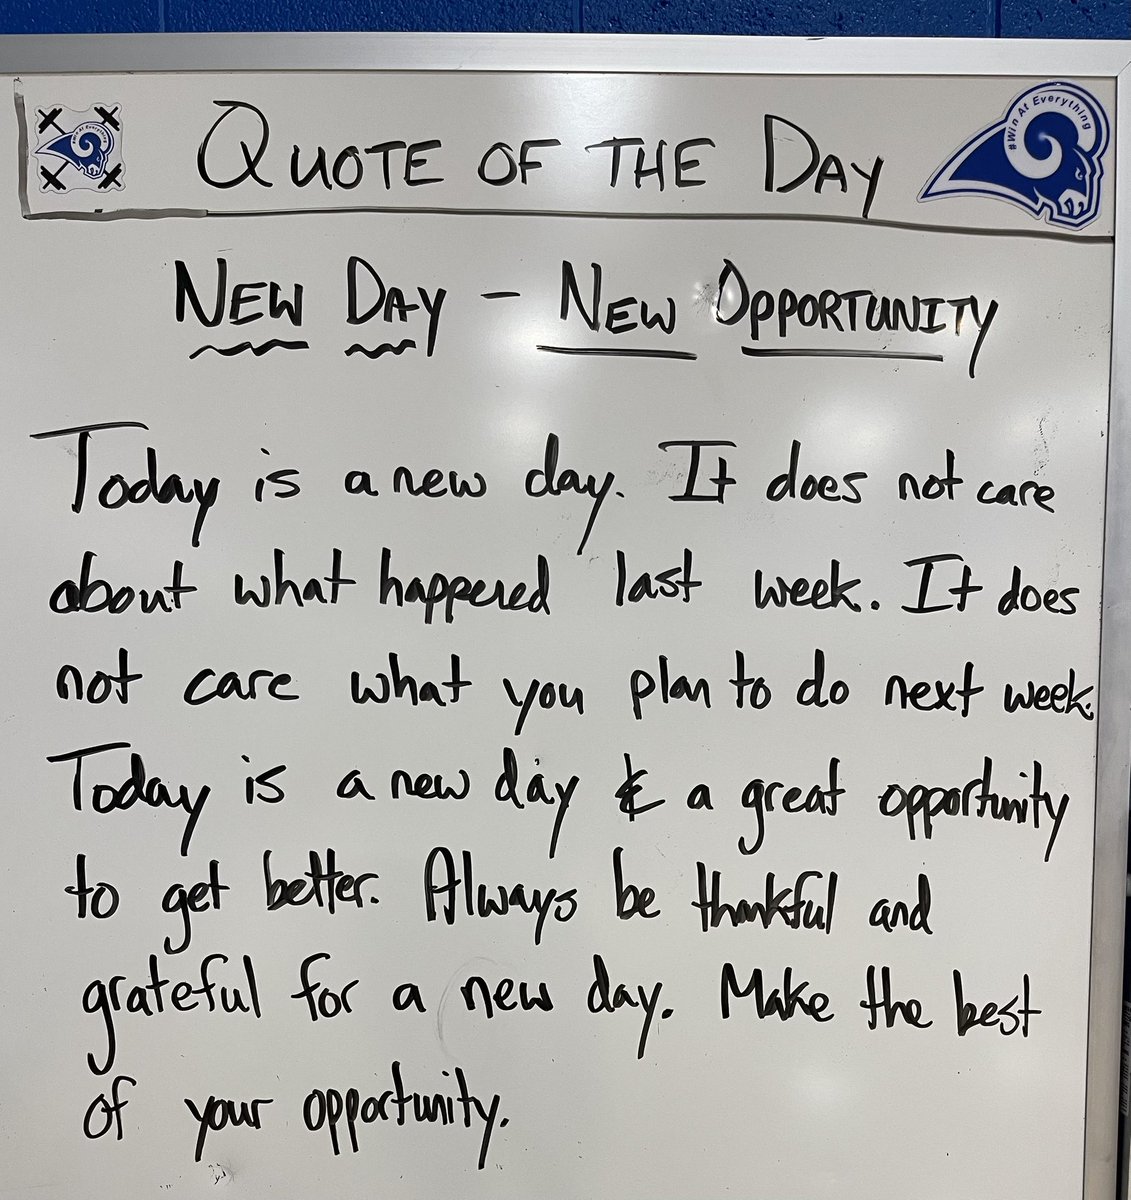 #Win At Everything
QUOTE OF THE DAY
#Win At Everything
NEW DAY - NEW OPPORTUNITY
Today is a new day. It does not care
about what happered last week. It does
not care what you plan to do next week.
Today is a new day & a great opportunity
to get better. Always be thankful and
grateful for a new day. Make the best
of your opportunity.